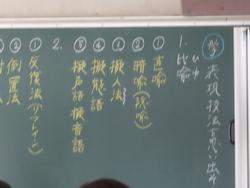 表現技法を思い出そ
1. 比喩
ひゆ
① 直喩
② 暗喩(隠喩)
③ 擬人法
④ 擬態語
⑤ 擬声語 擬音語
2.
① 反復法(リフレイン)
② 倒置法
③ 対